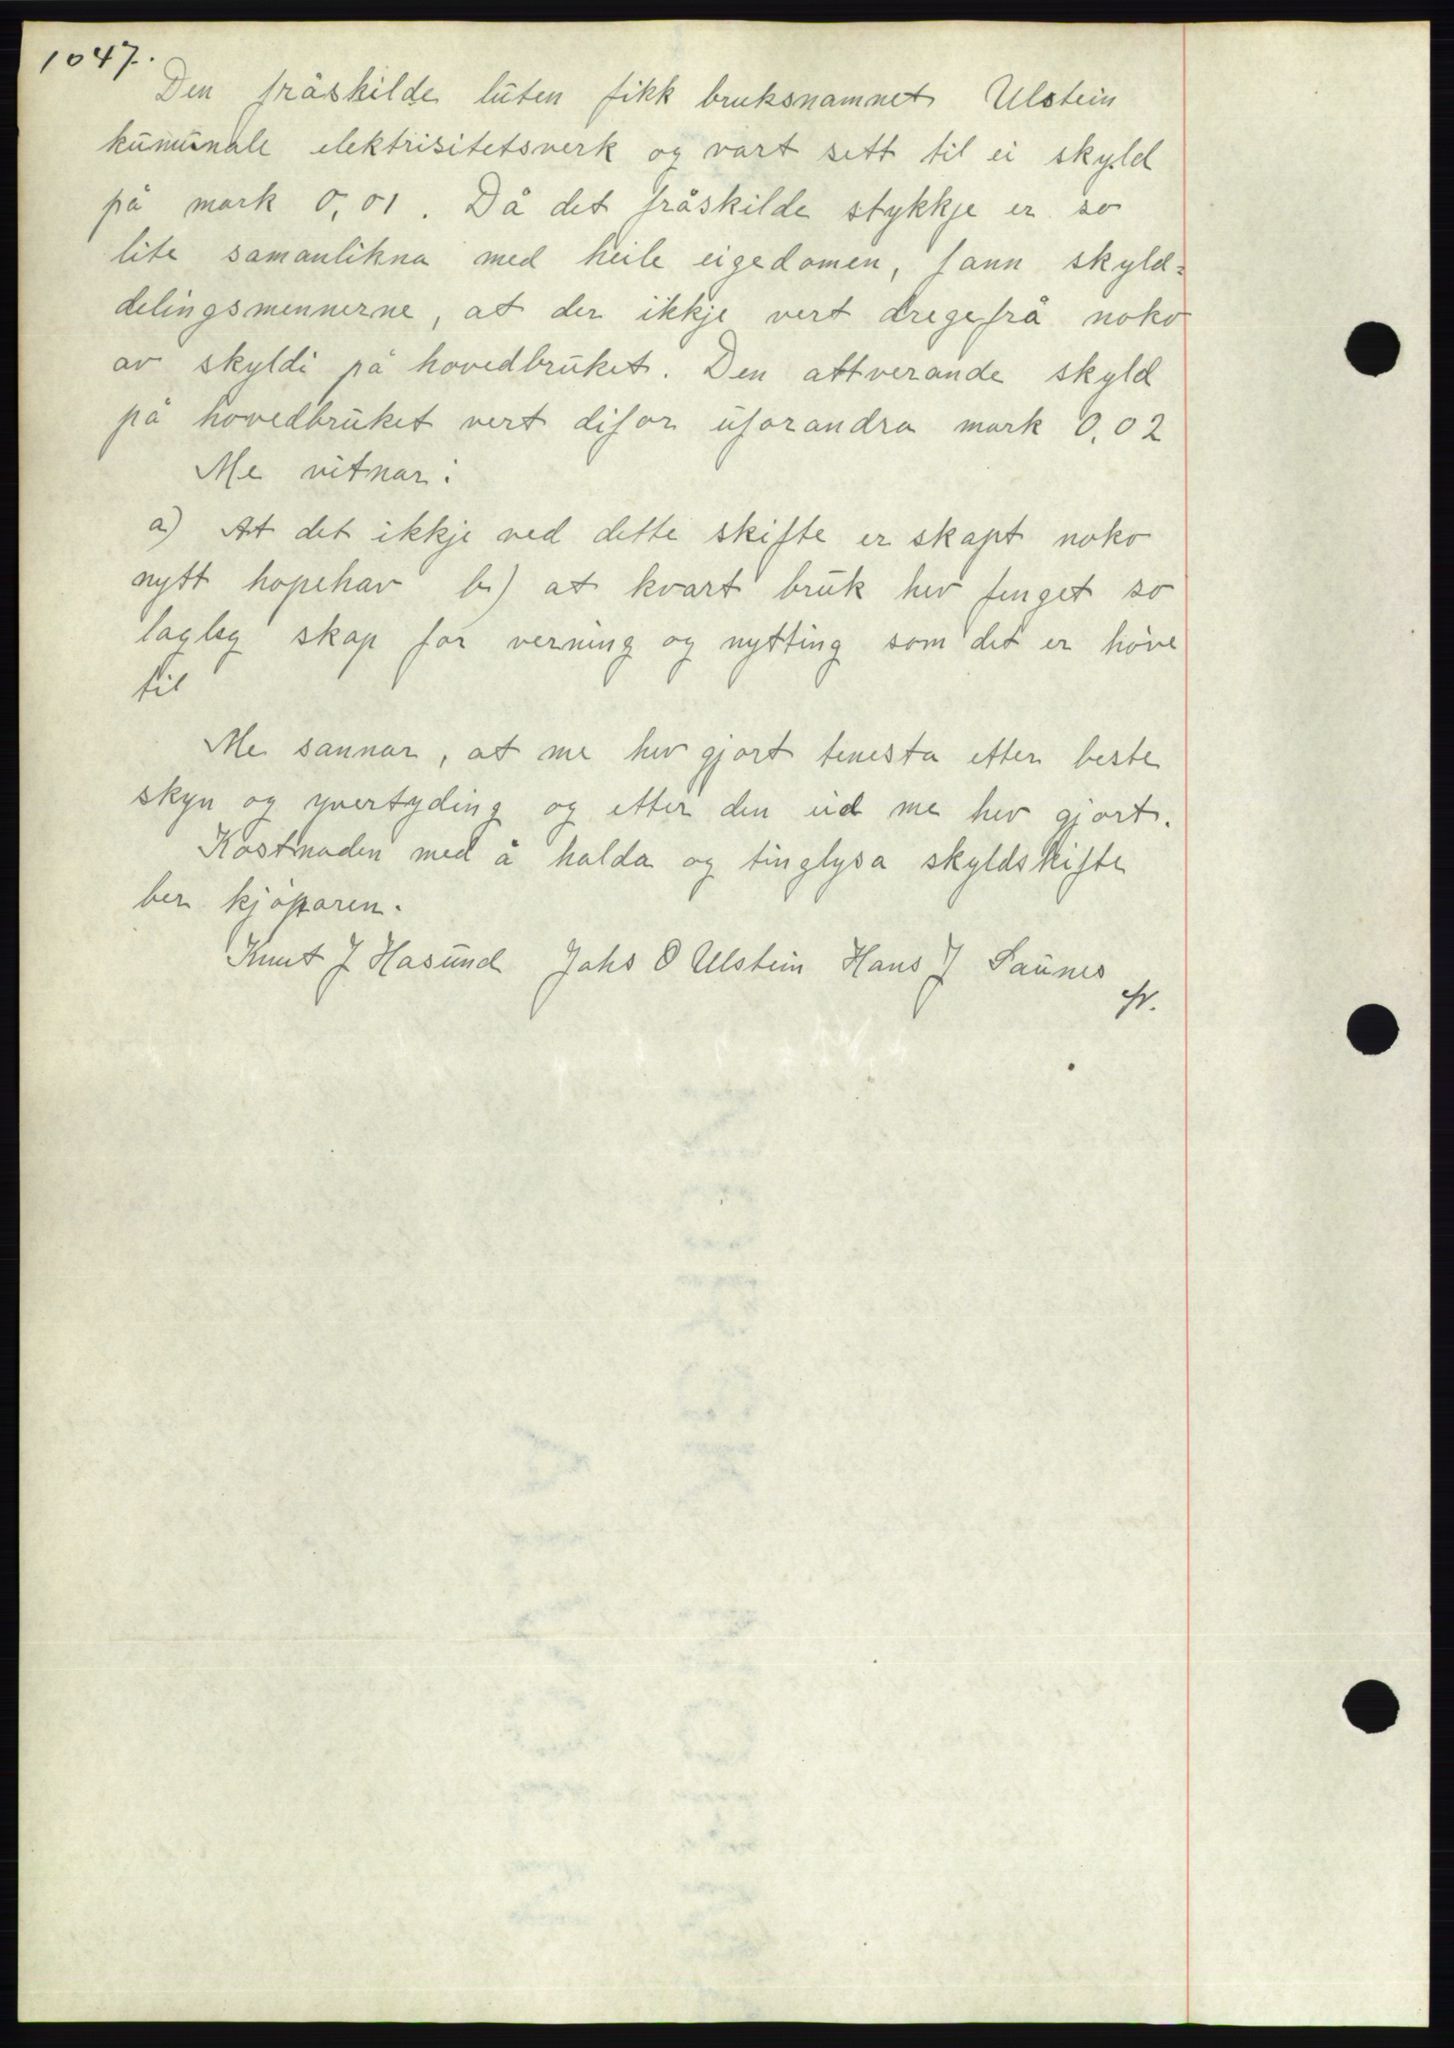 1047.
Den fråskilde luten fikk bruksnamnet Ulstein
kumunale elektrisitetsverk og vart sett til ei skyld
på mark 0,01. Då det fråskilde stykkje er so
lite samanlikna med heile eigedomen, fann skyld=
delingsmennerne, at der ikkje vert drege frå noko
av skyldi på hovedbruket. Den attverande skyld
på hovedbruket vert difor uforandra mark 0,02
Me vitnar:
a) At det ikkje ved dette skifte er skapt noko
nytt hopehav b) at kvart bruk hev fenget so
lagleg skap for verning og nytting som det er høve
til
Me sannar, at me hev gjort tenesta etter beste
skyn og yvertyding og etter den eid me hev gjort.
Kostnaden med å halda og tinglysa skyldskifte
ber kjøparen.
Knut J Hasund Johs O Ulstein Hans J Saunes